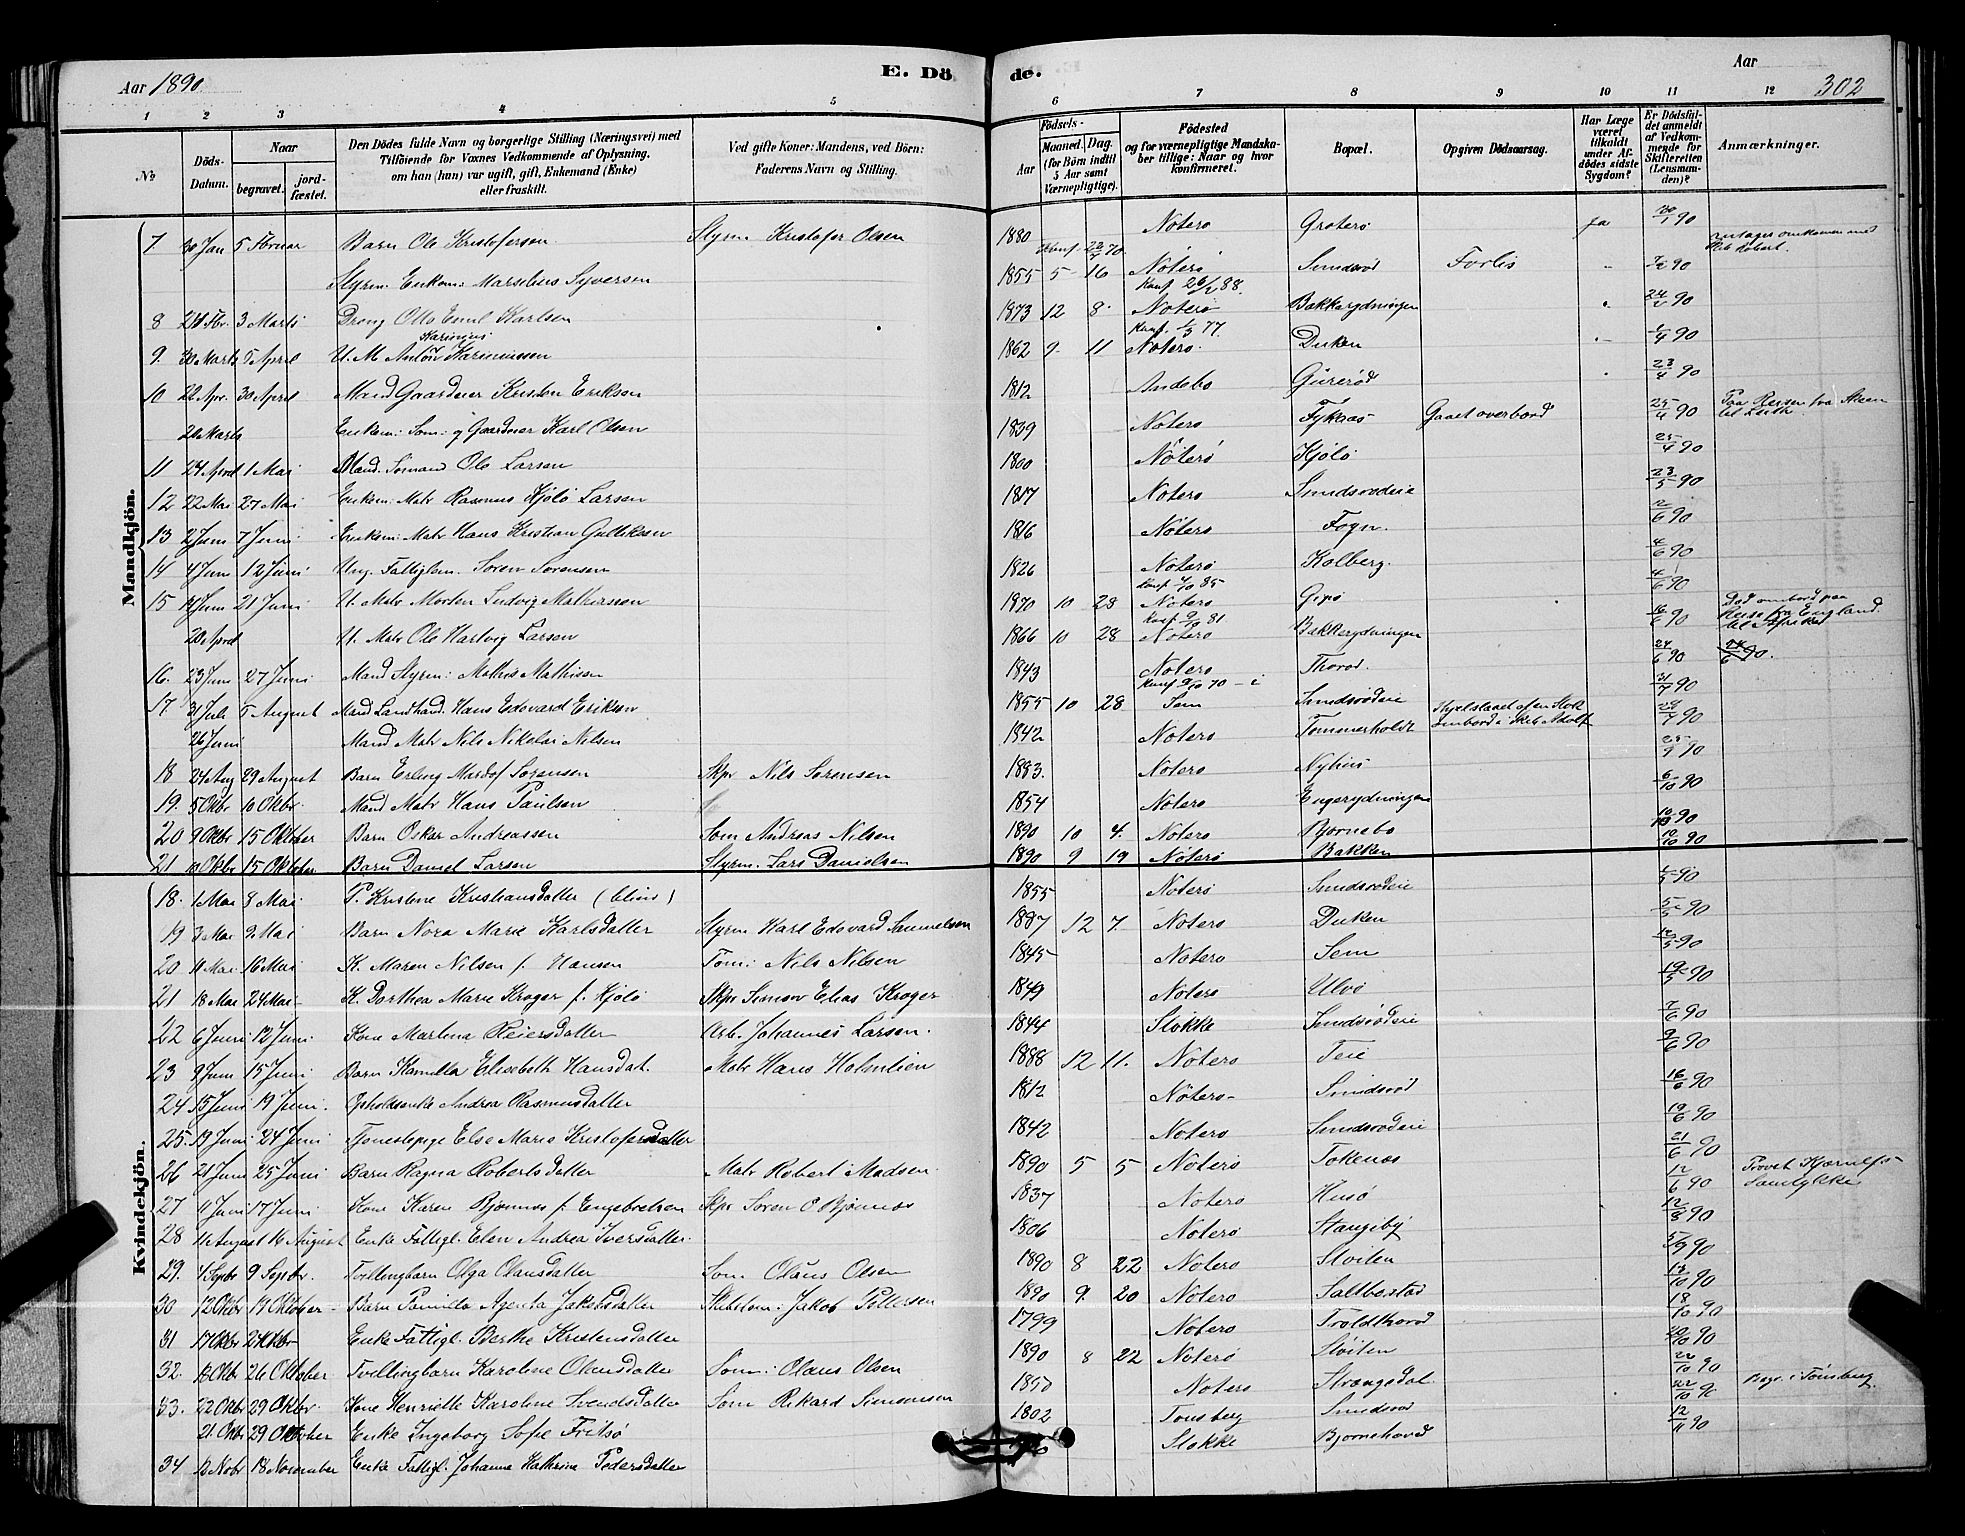 Aar 1890.
E. Dö
de.
Aar
302
1 2 3 4 5 6 7 8 9 10 11 12
No
Döds-Datum.
Naar
begravet.
jord-fæstet.
Den Dödes fulde Navn og borgerlige Stilling (Næringsvei) med
Tilföiende for Voxnes Vedkommende af Oplysning,
om han (hun) var ugift, gift, Enkemand (Enke)
eller fraskilt.
Ved gifte Koner: Mandens, ved Börn:
Faderens Navn og Stilling.
Födsels-
Aar
Maaned. Dag.
(for Börn indtil
5 Aar samt
Værnepligtige).
Födested
og for værnepligtige Mandska-
ber tillige: Naar og hvor
konfirmeret.
Bopæl.
Opgiven Dödsaarsag.
Har Læge
været
tilkaldt
under Af-
dödes sidste
Sygdom?
Er Dödsfal-
det anmeldt
af Vedkom-
mende for
Skifteretten
(Lensman-
den)?
Anmærkninger.
Mandkjön.
7 30 Jan 5 Februar Barn Ole Kristofersen Styrm Kristofer Olsen 1880 Noterø Groterø ja 30/1 90
Styrm: Enkem: Marselius Syversen 1855 5 16 Noterø Smidsrød Forlis 90
8 24 Fbr. 3 Marts Dreng Otto Emil Karlsen 1873 12 8 Konf 88. Noterø Bakkerydningen 24/2 90
9. 30 Marts 5 April U. M. Anton 1862 9. 11 Konf. 77. Noterø Duken 1/4 90
10 22 Apr. 30 April Mand Gaardeier Kristen Eriksen 1812 Andebo 23/4 90
20 Marts Enkem: Søm: g Gaardeier Karl Olsen 1839 Noterø Gaaet overbord 25/4 90 Paa Reisen fra
11 24 April 1 Mai Mand. Sømand Ole Larsen 1800 Nøterø Kjølø 25/4 90
12 22 Mai 27 Mai Enkem: Matr Rasmus Kjølø Larsen 1817 Noterø Smidsrødeie 23/5 90
13 2 Juni 7 Juni Enkem: Matr Hans Kristian Gulliksen 1816 Nøterø 2/6 90
14 4 Juni 12 Juni Ung. Fattiglem. Søren Sørensen 1826 Noterø Kolberg. 4/6 90
15 Juni 21 Juni U. Matr Morten Ludvig Mathiassen 1870 10 28 Konf 85 Noterø Gipø 90
20 April U. Matr Ole Hartvig Larsen 1866 10 28 Konf 81 Noterø Bakkerydningen 16/6 90 Død ombord paa Reise fra England til Afrika
16. 23 Juni 27 Juni Mand Styrm: Mathis Mathisen 1843 Noterø Thorød. 24/6 90
17 31 Juli 5 August Mand Landhand. Hans Edvard Eriksen 1855 10 28 Konf 70 - i Sem Smidsrødeie 31/7 90
26 Juni Mand Matr Nils Nikolai Nilsen 1842 Noterø Tømmerholdt ombord i Skib Adolf 90
18 24 Aug 29 August Barn Erling Sørensen Skpr Nils Sørensen 1883. Noterø 90
19. 5 Oktbr 10 Oktbr. Mand Matr Hans Paulsen 1854 Noterø Engerydningen 6/10 90
20 9 Oktbr 15 Oktober Barn Oskar Andreassen Søm Andreas Nilsen 1890 10 4. Noterø Bjørnebo 10/10 90
21 10 Oktbr 15 Oktober Barn Daniel Larsen Styrm: Lars Danielsen 1890 9 19 Nøterø Bakken 10/10 90
Kvindekjön.
18. 1 Mai 8 Mai P. Kristine Kristiansdatter 1855 Noterø Smidsrødeie 1/5 90
19 3 Mai 9 Mai Barn Nora Marie Karlsdatter Styrm Karl Edvard Samuelsen 1887 12 7. Noterø Duken 5/5 90
20 11 Mai 16 Mai K. Maren Nilsen f. Hansen Tøm: Nils Nilsen 1845 Noterø Sem 12/5 90
21 18 Mai 24 Mai K. Dorthea Marie Krøger f. Kjølø Skpr Simon Elias Krøger 1849 Noterø Ulvø 19/5 90
22 6 Juni 12 Juni. Kone Martena Reiersdatter Arb. Johannes Larsen. 1844 Stokke Smidsrødeie 7/6 90
23 9 Juni 15 Juni. Barn Kamilla Elisabeth Hansdat. Matr Hans Holmlien 1888 12 11. Noterø Teie 9/6 90
24 15 Juni 19 Juni. Opholdsenke Andrea Rasmusdatter 1812 Nøterø Smidsrød 16/6 90
25. 19 Juni 24 Juni Tjenestepige Else Marie Kristofersdatter 1842 Noterø Smidsrødeie 19/6 90
26 21 Juni 25 Juni Barn Ragna Robertsdatter Matr Robert Madsen. 1890 5 5 Noterø Tokenæs 21/6 90
27 11 Juni 17 Juni Kone Karen Bjønnes f. Engebretsen Skpr Søren O Bjønnes 1837 Noterø Husø 12/6 90
28 11 August 16 August Enke Fattigl. Elen Andrea Iversdatter. 1806 Noterø Stangeby 12/8 90
29. 4 Septbr 9 Septbr. Tvillingbarn Olga Olausdatter Søm Olaus Olsen 1890 8 22 Noterø Sloiten 5/9 90
30 12 Oktbr 19 Oktober Barn Agenta Jakobsdatter Jakob Pettersen 1890 9. 20 Noterø Saltbostad 13/10 90
31 17 Oktbr 21 Oktbr Enke Fattigl. Berthe Kristensdatter 1799 Noterø 18/10 90
32. 18 Oktbr 26 Oktober Tvillingbarn Karoline Olausdatter Søm: Olaus Olsen 1890 8 22 Noterø Sloiten 20/10 90
33. 22 Oktbr 29 Oktbr. Kone Henriette Karoline Svendsdatter Søm Rikard Simensen 1850 Noterø Strængsdal 22/10 90
21. Oktbr 29 Oktober Enke Ingeborg Sofie Fritsø 1802 Tønsberg Smidsrød 22/10 90 Begr. i Tønsberg
34 12 Novbr 18 November Enke Fattigl. Johanne Kathrine Pedersdatter Stokke Bjørnehoved 12/11 90